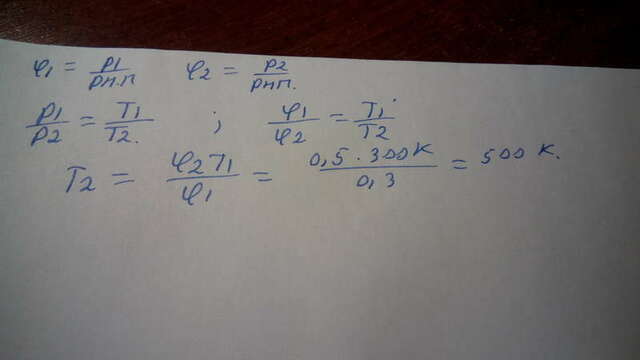 φ₁ = р1/рн.п φ₂ = р2/рнп.
р1/р2 = T₁/T2. ; φ₁/φ₂ = T₁/T2
T₂ = φ₂T₁/φ₁ = 0,5·300к/0,3 = 500 к.